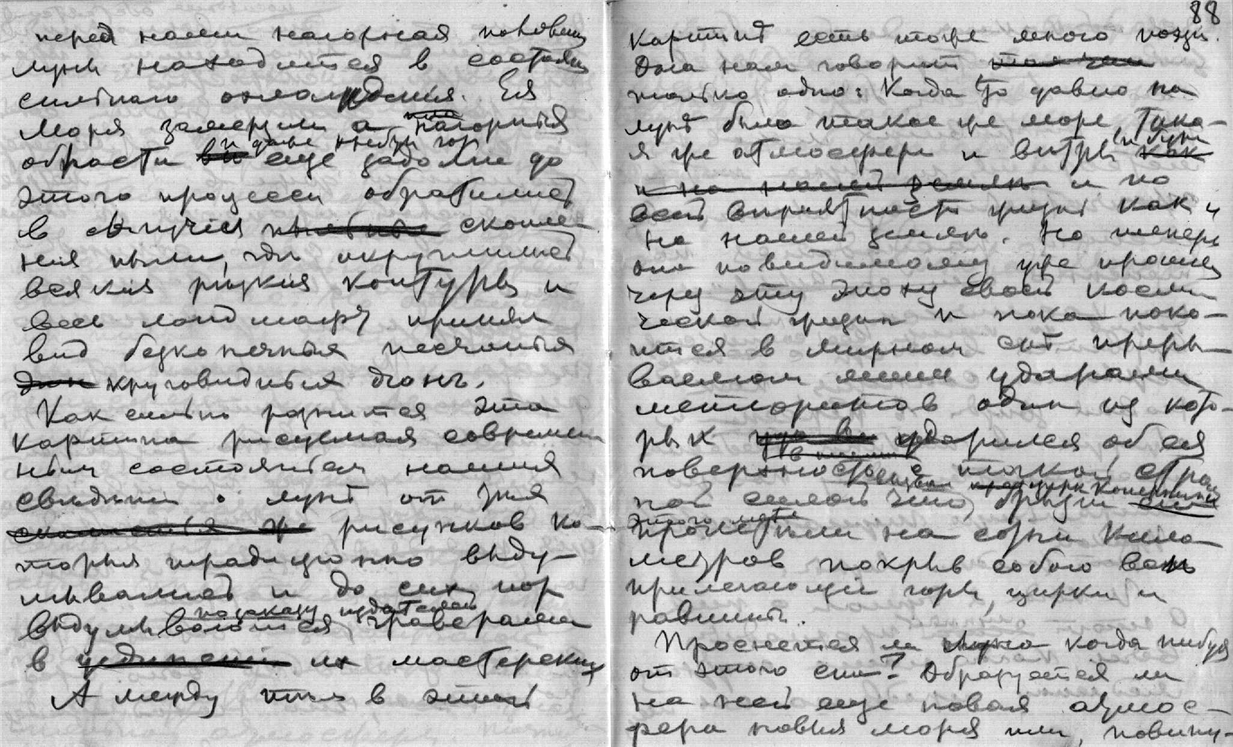 перед нами нагорная половина
луны находится в состоянии
сильнаго охлаждения. Ея
моря замерзли а нагорныя
области и даже кнезу гор еще задолго до
этого процесса обратились
в сыпучия скопле-
ния пыли, где округлились
всякия резкия контуры и
весь ландшафт принял
вид безконечныя песчаныя
круговидныя дюнъ.
Как сильно разнится эта
картина рисуемая современ
ным состоянием нашия
сведении о луне от тех
рисунков ко-
торыя традиционно выду-
мывались и до сих пор
выдумываются по заказу издателей граверами
в их мастерских
А между тем в этой
88
картине есть тоже много поэзи.
Она нам говорит
только одно: Когда то давно на
луне было такое же море, така-
я же атмосфера и ветры
и по
всей вероятности жизнь как и
на нашей земле. Но теперь
она повидимому уже прошла
через эту эпоху своей косми-
ческой жизни и пока поко-
ится в мирном сне преры-
ваемом лишь ударами
метеоритов один из кото-
рых ударился об ея
поверхность с такой стра-
ной силой что брызги
этого пролетели на сотни кило
метров покрыв собою все
прилегающия горы, цирки и
равнины.
Проснется ли луна когда нибудь
от этого сна? Образуется ли
на ней еще новая атмос-
фера новыя моря или, повину-